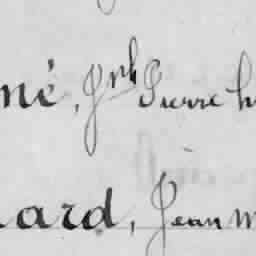 né, Jph Pierre h
ard, Jean M